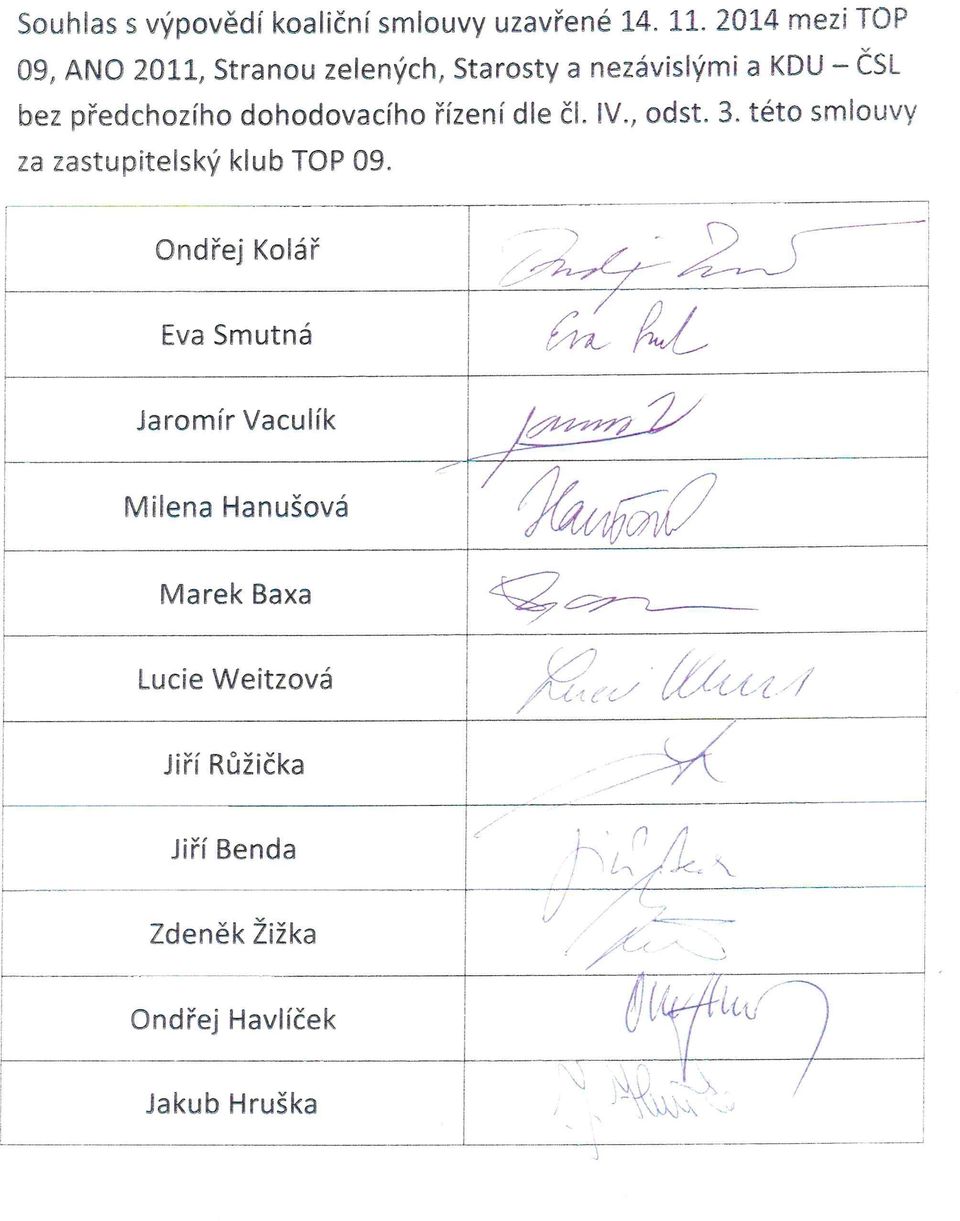 Souhlas s výpovědí koaliční smlouvy uzavřené 14. 11. 2014 mezi TOP
09, ANO 2011, Stranou zelených, Starosty a nezávislými a KDU – ČSL
bez předchozího dohodovacího řízení dle čl. IV., odst. 3. této smlouvy
za zastupitelský klub TOP 09.
Ondřej Kolář
Eva Smutná Eva
Jaromír Vaculík
Milena Hanušová
Marek Baxa
Lucie Weitzová
Jiří Růžička
Jiří Benda
Zdeněk Žižka
Ondřej Havlíček
Jakub Hruška